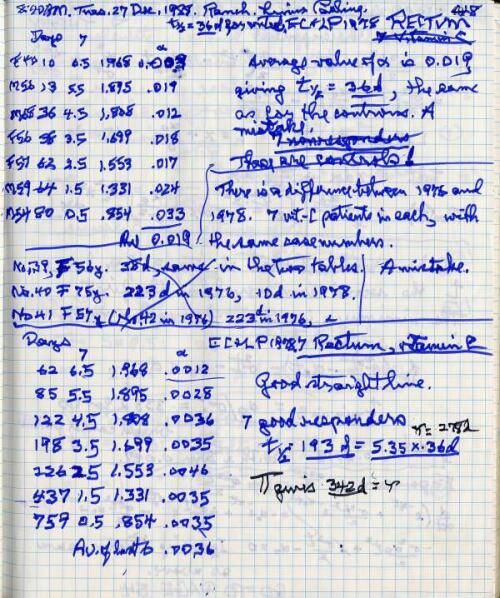 Tues. 27 Dec. 1988. Ranch.
t½ = 36d for control, EC+LP 1978 RECTUM
Days y α
F40 10 6.5 1.968
M56 13 5.5 1.895 .019
M68 36 4.5 1.808 .012
F56 3.5 1.699 .018
62 2.5 1.553 .017
M59 64 1.5 1.331 .024
M54 80 0.5 .854 .033
Av 0.019
Average value of α is 0.019
giving t½ = 36d, the same
as for the controls. A
mistake.
7 nonresponders
These are controls!
There is a difference between 1976 and
1978. 7 vit-C patients in each, with
the same case numbers.
56y. 38d, same in the two tables. A mistake.
No. 40 F 75y. 223d in 1976, 10d in 1978.
No 41 F 57y (No 42 in 1976) 223d in 1976,
Days EC+LP 1978 7 Rectum, vitamin C
y α
62 6.5 1.968 .0012
85 5.5 1.895 .0028
122 4.5 1.808 .0036
198 3.5 1.699 .0035
226 2.5 1.553 .0046
437 1.5 1.331 .0035
759 0.5 .854 .0035
Av. of last 6 .0036
Good straight line.
7 good responders
t½ = 193 d = 5.35 × 36d
gives 342d =